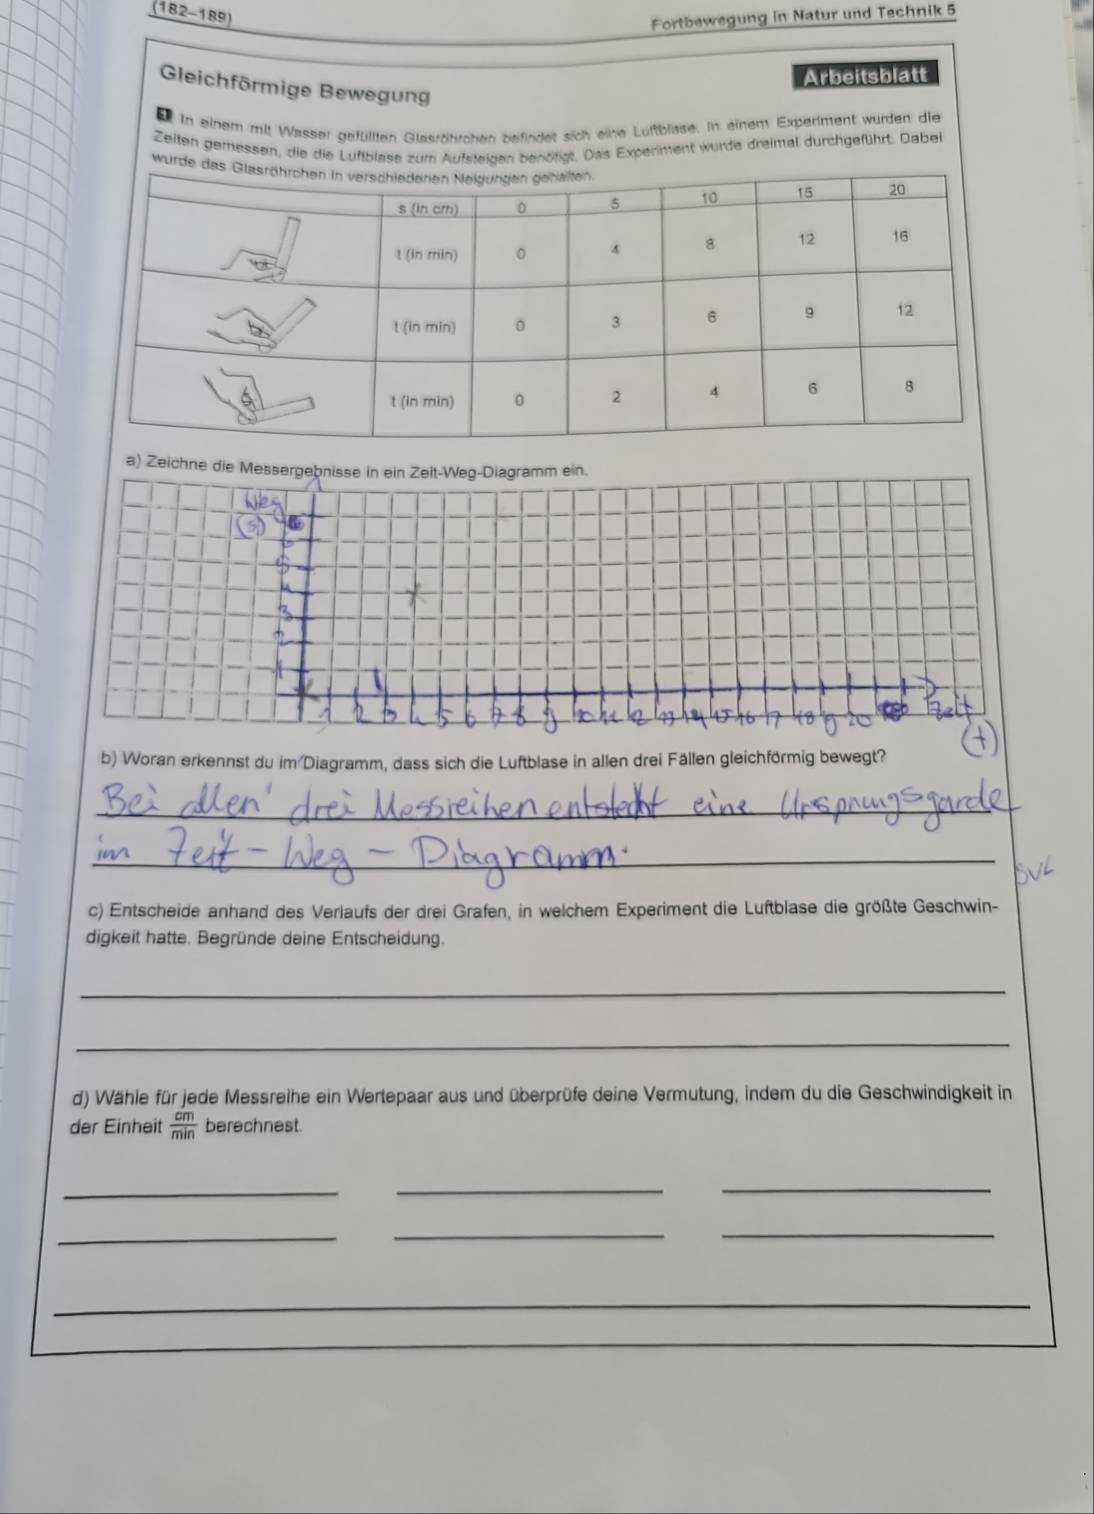 (182–189)
Fortbewegung in Natur und Technik 5
Gleichförmige Bewegung
Arbeitsblatt
1 In einem mit Wasser gefüllten Glasröhrchen befindet sich eine Luftblase. In einem Experiment wurden die
Zeiten gemessen, die die Luftblase zum Aufsteigen benötigt. Das Experiment wurde dreimal durchgeführt. Dabei
wurde das Glasröhrchen in verschiedenen Neigungen gehalten.
s (in cm) 0 5 10 15 20
t (in min) 0 4 8 12 16
t (in min) 0 3 6 9 12
t (in min) 0 2 4 6 8
a) Zeichne die Messergebnisse in ein Zeit-Weg-Diagramm ein.
Weg
(s)
6
5
4
3
2
1
1 2 3 4 5 6 7 8 9 10 11 12 13 14 15 16 17 18 19 20 Zeit
(t)
b) Woran erkennst du im Diagramm, dass sich die Luftblase in allen drei Fällen gleichförmig bewegt?
Bei allen drei Messreihen entsteht eine Ursprungsgarde
im Zeit-Weg-Diagramm.
c) Entscheide anhand des Verlaufs der drei Grafen, in welchem Experiment die Luftblase die größte Geschwin-
digkeit hatte. Begründe deine Entscheidung.
d) Wähle für jede Messreihe ein Wertepaar aus und überprüfe deine Vermutung, indem du die Geschwindigkeit in
der Einheit cm/min berechnest.